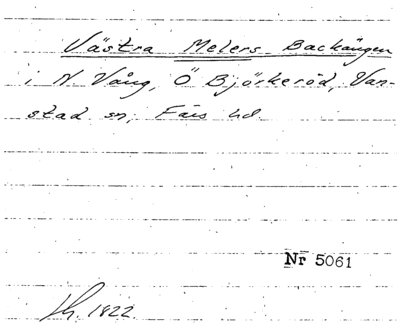 Västra Melers Backängen
i N Vång, Ö Björkeröd, Van-
stad sn, Färs hd.
Nr 5061
1822